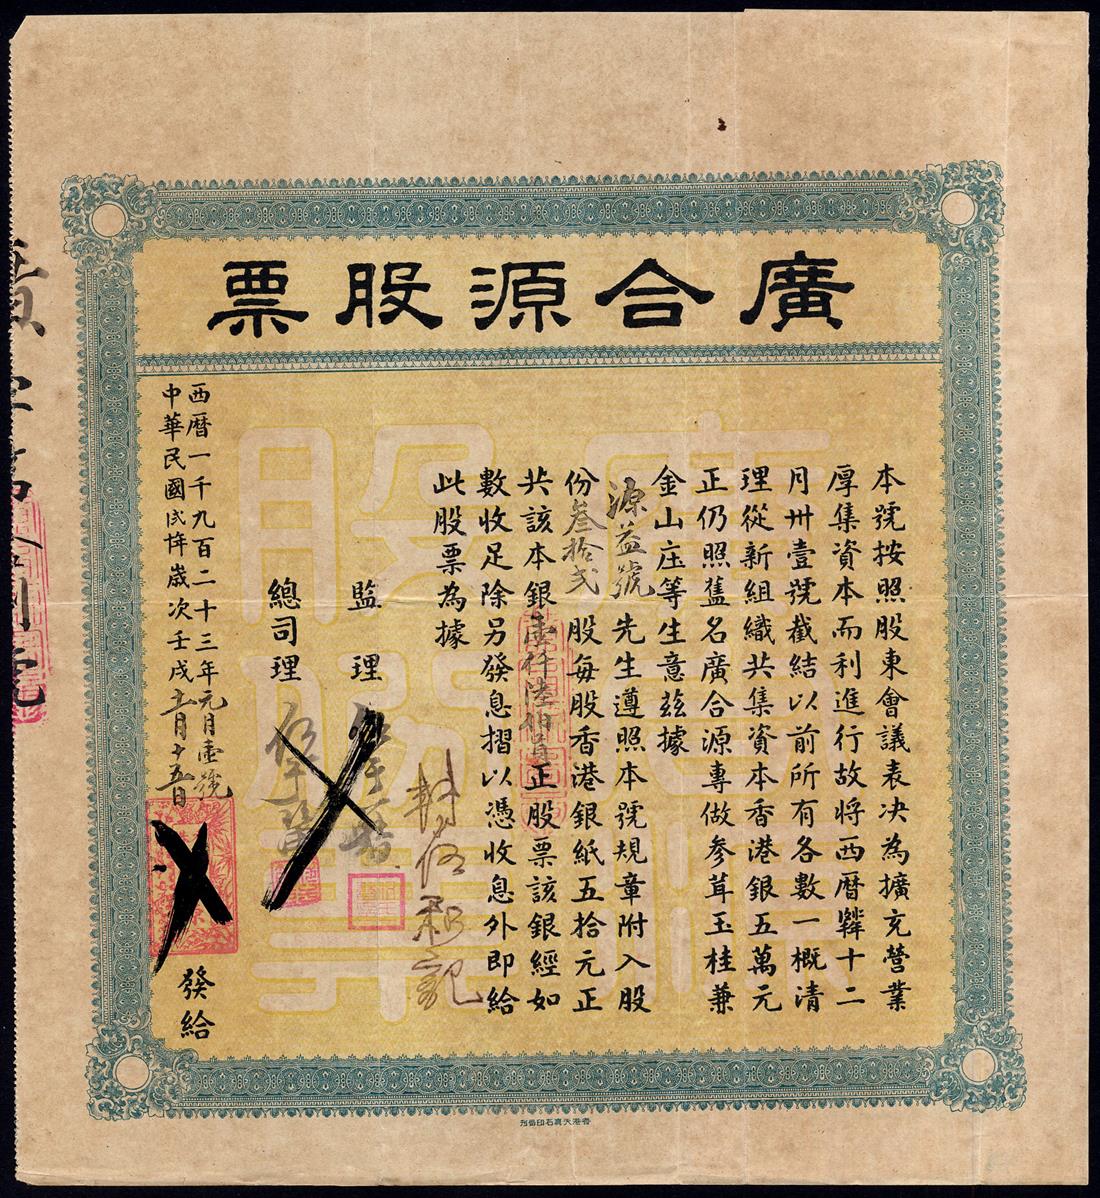 廣合源股票
本號按照股東會議表决為擴充營業
厚集資本而利進行故將西曆 十二
月卅壹號截結以前所有各數一概清
理從新組織共集資本香港銀五萬元
正仍照舊名廣合源專做參茸玉桂兼
金山庄等生意茲據
源益號先生遵照本號規章附入股
份叁拾弍股每股香港銀紙五拾元正
共該本銀壹仟陸伯員正股票該銀經如
數收足除另發息摺以憑收息外即給
此股票為據
監理
總司理
西曆一千九百二十三年元月壹號
中華民國 歲次壬戌十一月十五日
發給
香港天真石印局刋